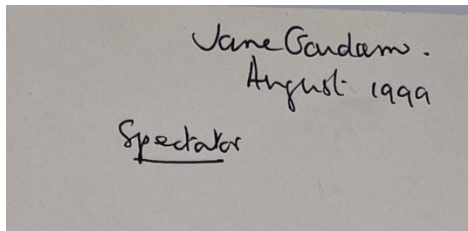 Jane Gardam.
August 1999
Spectator